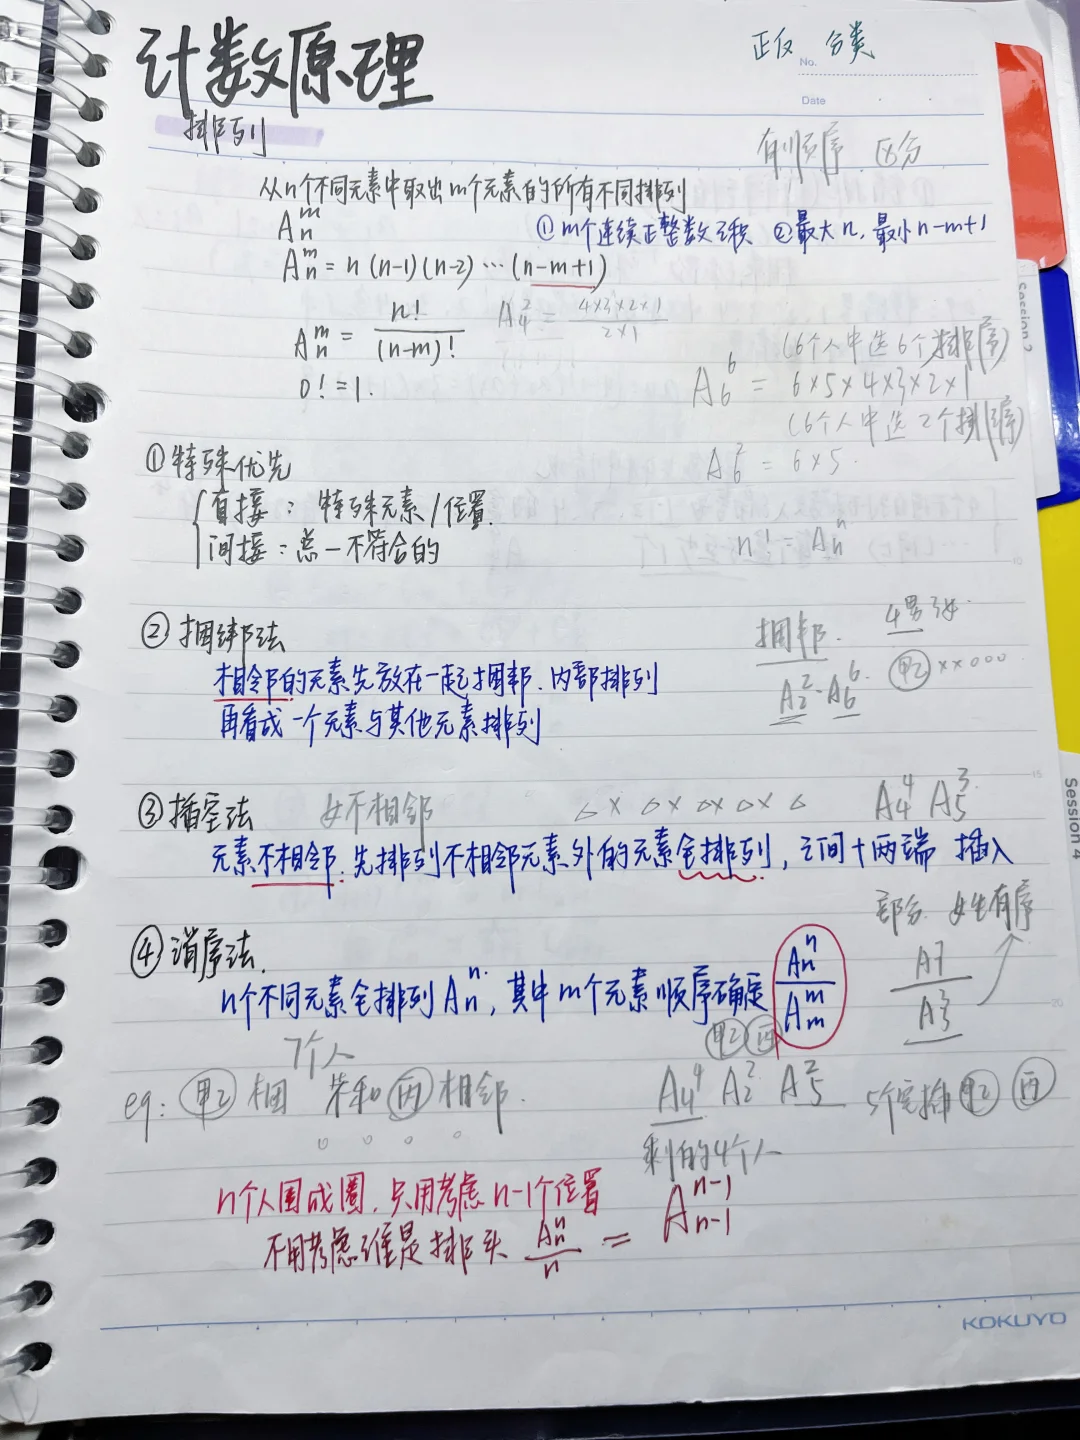 计数原理
正反 分类
No.
Date
排列
有顺序 区分
从n个不同元素中取出m个元素的所有不同排列
Aₙᵐ
①m个连续正整数之积 ②最大n, 最小n-m+1
Aₙᵐ = n(n-1)(n-2)…(n-m+1)
Aₙᵐ = n!/(n-m)!
A₄² = 4×3×2×1/2×1
0! = 1.
(6个人中选6个排序)
A₆⁶ = 6×5×4×3×2×1
(6个人中选2个排序)
A₆² = 6×5.
n! = Aₙⁿ
①特殊优先
直接: 特殊元素/位置.
间接: 总-不符合的
②捆绑法
相邻的元素先放在一起捆绑. 内部排列
再看成一个元素与其他元素排列
捆绑. 4男3女.
A₂²·A₆⁶. 甲乙××○○○
③插空法 女不相邻 △×△×△×△×△ A₄⁴ A₅³
元素不相邻. 先排列不相邻元素外的元素全排列, 之间+两端 插入
部分 女生有序
A⁷₇/A³₃
④消序法.
n个不同元素全排列Aₙⁿ, 其中m个元素顺序确定 Aₙⁿ/Aₘᵐ
7个人
甲乙 丙
eg: 甲乙 相 和丙相邻. A₄⁴ A₂² A₅² 5个空插甲乙 丙
○ ○ ○ ○
剩的4个人
n个人围成圈, 只用考虑n-1个位置
不用考虑谁是排头 Aₙⁿ/n = Aₙ₋₁ⁿ⁻¹
KOKUYO
Session 4